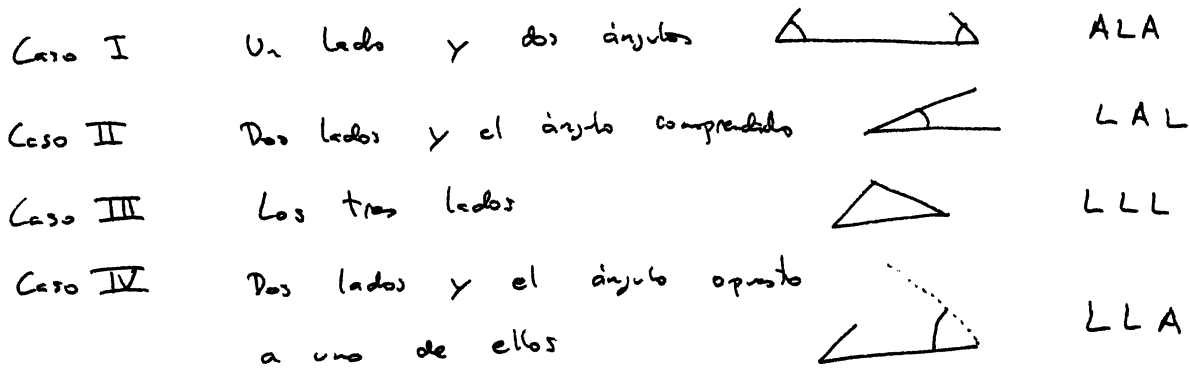 Caso I Un lado y dos ángulos ALA
Caso II Dos lados y el ángulo comprendido LAL
Caso III Los tres lados LLL
Caso IV Dos lados y el ángulo opuesto LLA
a uno de ellos